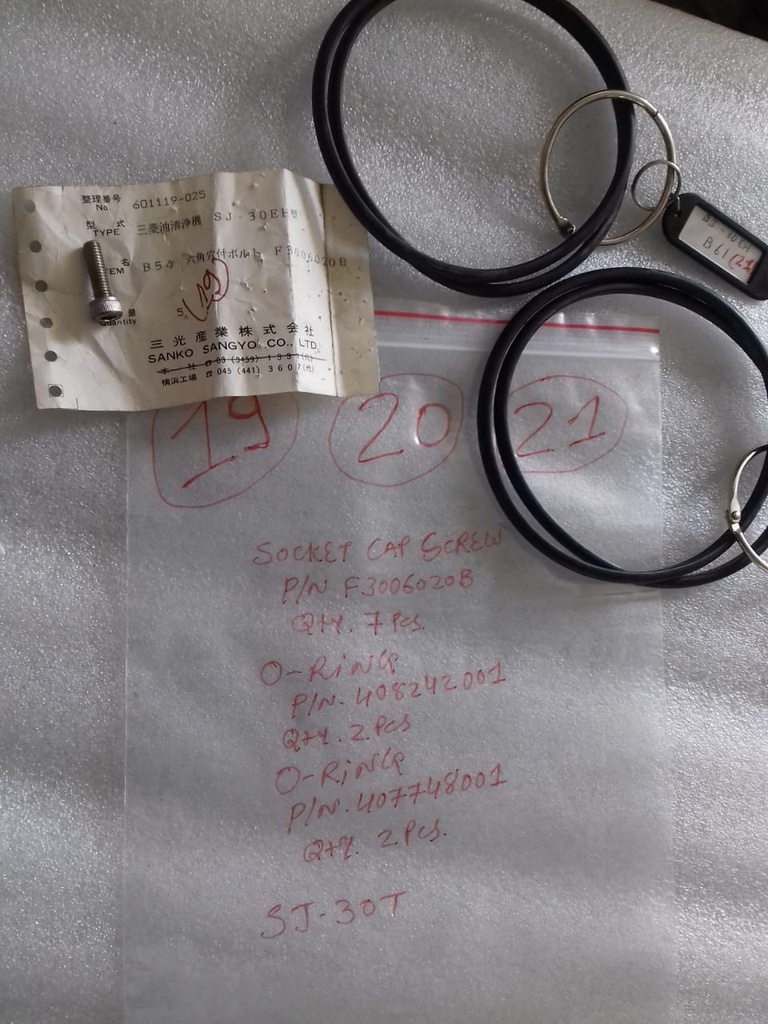 整理番号
No. 601119-025
型 式
TYPE 三菱油清浄機 SJ-30EH型
名
TEM B54 六角穴付ボルト F3006020B
量
uantity 5
19
三光産業株式会社
SANKO SANGYO CO., LTD
本 社 ☎ 03 (3459)
横浜工場 ☎ 045 (441) 3607(代)
B61(21
19 20 21
SOCKET CAP SCREW
P/N F3006020B
QTY. 7 PCS.
O-RING
P/N. 408242001
QTY. 2 PCS
O-RING
P/N. 407748001
QTY. 2 PCS.
SJ-30T